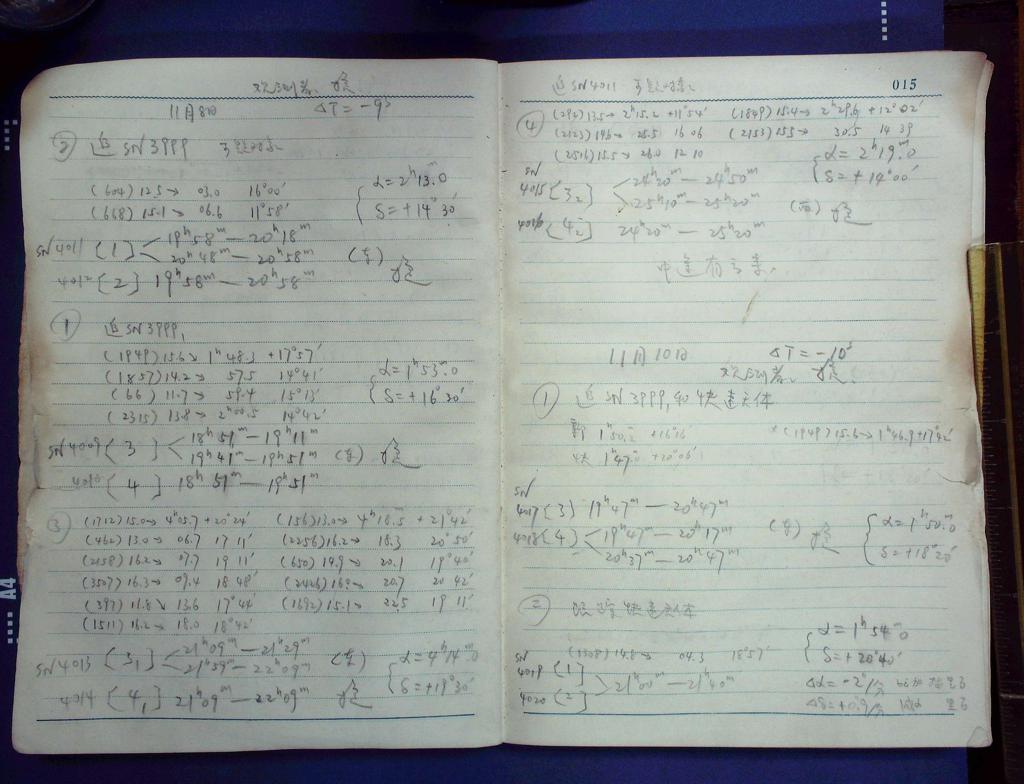 观测者
11月8日 ΔT=-9ˢ
② 追 SN 3999
(604) 12.5→ 03.0 16°00′
(668) 15.1→ 06.6 11°58′
α=2ʰ13ᵐ.0
δ=+14°30′
SN 4011 [1] 19ʰ58ᵐ—20ʰ18ᵐ
20ʰ48ᵐ—20ʰ58ᵐ (东)
4012 [2] 19ʰ58ᵐ—20ʰ58ᵐ
① 追 SN 3999,
(1949) 15.6→ 1ʰ48.3 +17°57′
(1857) 14.2→ 57.5 14°41′
(66) 11.7→ 59.4 15°13′
(2315) 13.8→ 2ʰ00.5 14°42′
α=1ʰ53ᵐ.0
δ=+16°30′
SN 4009 [3] 18ʰ51ᵐ—19ʰ11ᵐ
19ʰ41ᵐ—19ʰ51ᵐ (东)
4010 [4] 18ʰ51ᵐ—19ʰ51ᵐ
③ (1712) 15.0→ 4ʰ05.7 +20°24′ (156) 13.0→ 4ʰ18.5 +21°42′
(462) 13.0→ 06.7 17 11′ (2256) 16.2→ 18.3 20°50′
(2158) 16.2→ 07.7 19 11′ (650) 14.9→ 20.1 19°40′
(3507) 16.3→ 09.4 18 48′ (2426) 20.7 20 42′
(397) 11.8→ 13.6 17°44′ (1692) 15.1→ 22.5 19 11′
(1511) 16.2→ 18.0 18°42′
SN 4013 [3₁] 21ʰ09ᵐ—21ʰ29ᵐ
21ʰ59ᵐ—22ʰ09ᵐ (东)
4014 [4₁] 21ʰ09ᵐ—22ʰ09ᵐ
α=4ʰ14ᵐ.0
δ=+19°30′
015
追 SN 4011
④ (292) 13.5→ 2ʰ15.2 +11°54′ (1849) 15.4→ 2ʰ29.6 +12°02′
(2123) 25.5 16 06 (2153) 15.5→ 30.5 14 39
(2516) 15.5→ 26.0 12 10
α=2ʰ19ᵐ.0
δ=+14°00′
SN
4015 [3₂] 24ʰ20ᵐ—24ʰ50ᵐ
25ʰ10ᵐ—25ʰ20ᵐ (西)
4016 [4₂] 24ʰ20ᵐ—25ʰ20ᵐ
中途有云来.
11月10日 ΔT=-10ˢ
观测者
① 追 SN 3999, 和 4 快速天体
1ʰ50.2 +16°16′ (1949) 15.6→ 1ʰ46.9 +17°42′
快 1ʰ47.0 +20°06′
SN
4017 [3] 19ʰ47ᵐ—20ʰ47ᵐ
4018 [4] 19ʰ47ᵐ—20ʰ17ᵐ (东)
20ʰ37ᵐ—20ʰ47ᵐ
α=1ʰ50ᵐ.0
δ=+18°20′
② 跟踪快速天体
(1308) 14.8→ 04.3 18°57′
α=1ʰ54ᵐ.0
δ=+20°40′
SN
4019 [1]
4020 [2] 21ʰ00ᵐ—21ʰ40ᵐ
Δα=-2″/分
Δδ=+0.9″/分